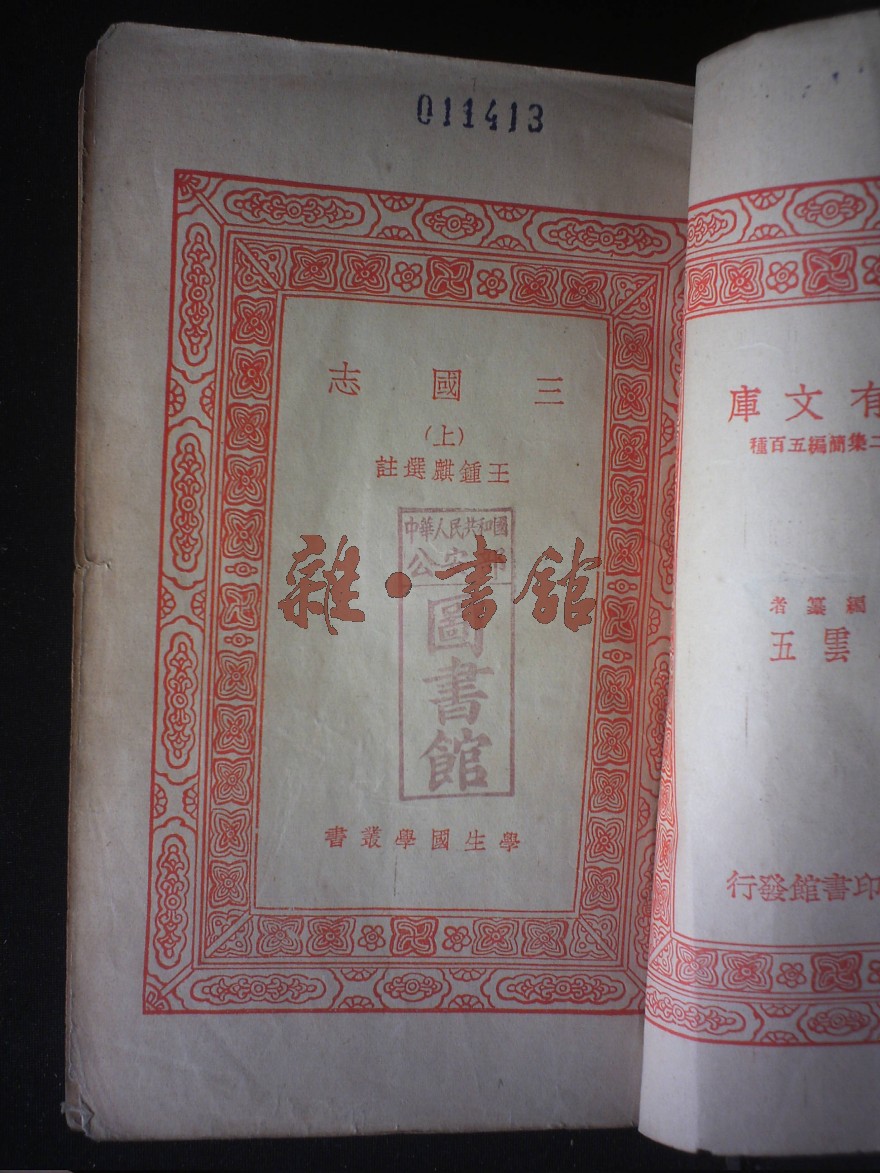 011413
三國志
(上)
王鍾麒選註
中華人民共和國
公安部
圖書館
雜·書館
學生國學叢書
有文庫
二集簡編五百種
編纂者
雲五
印書館發行